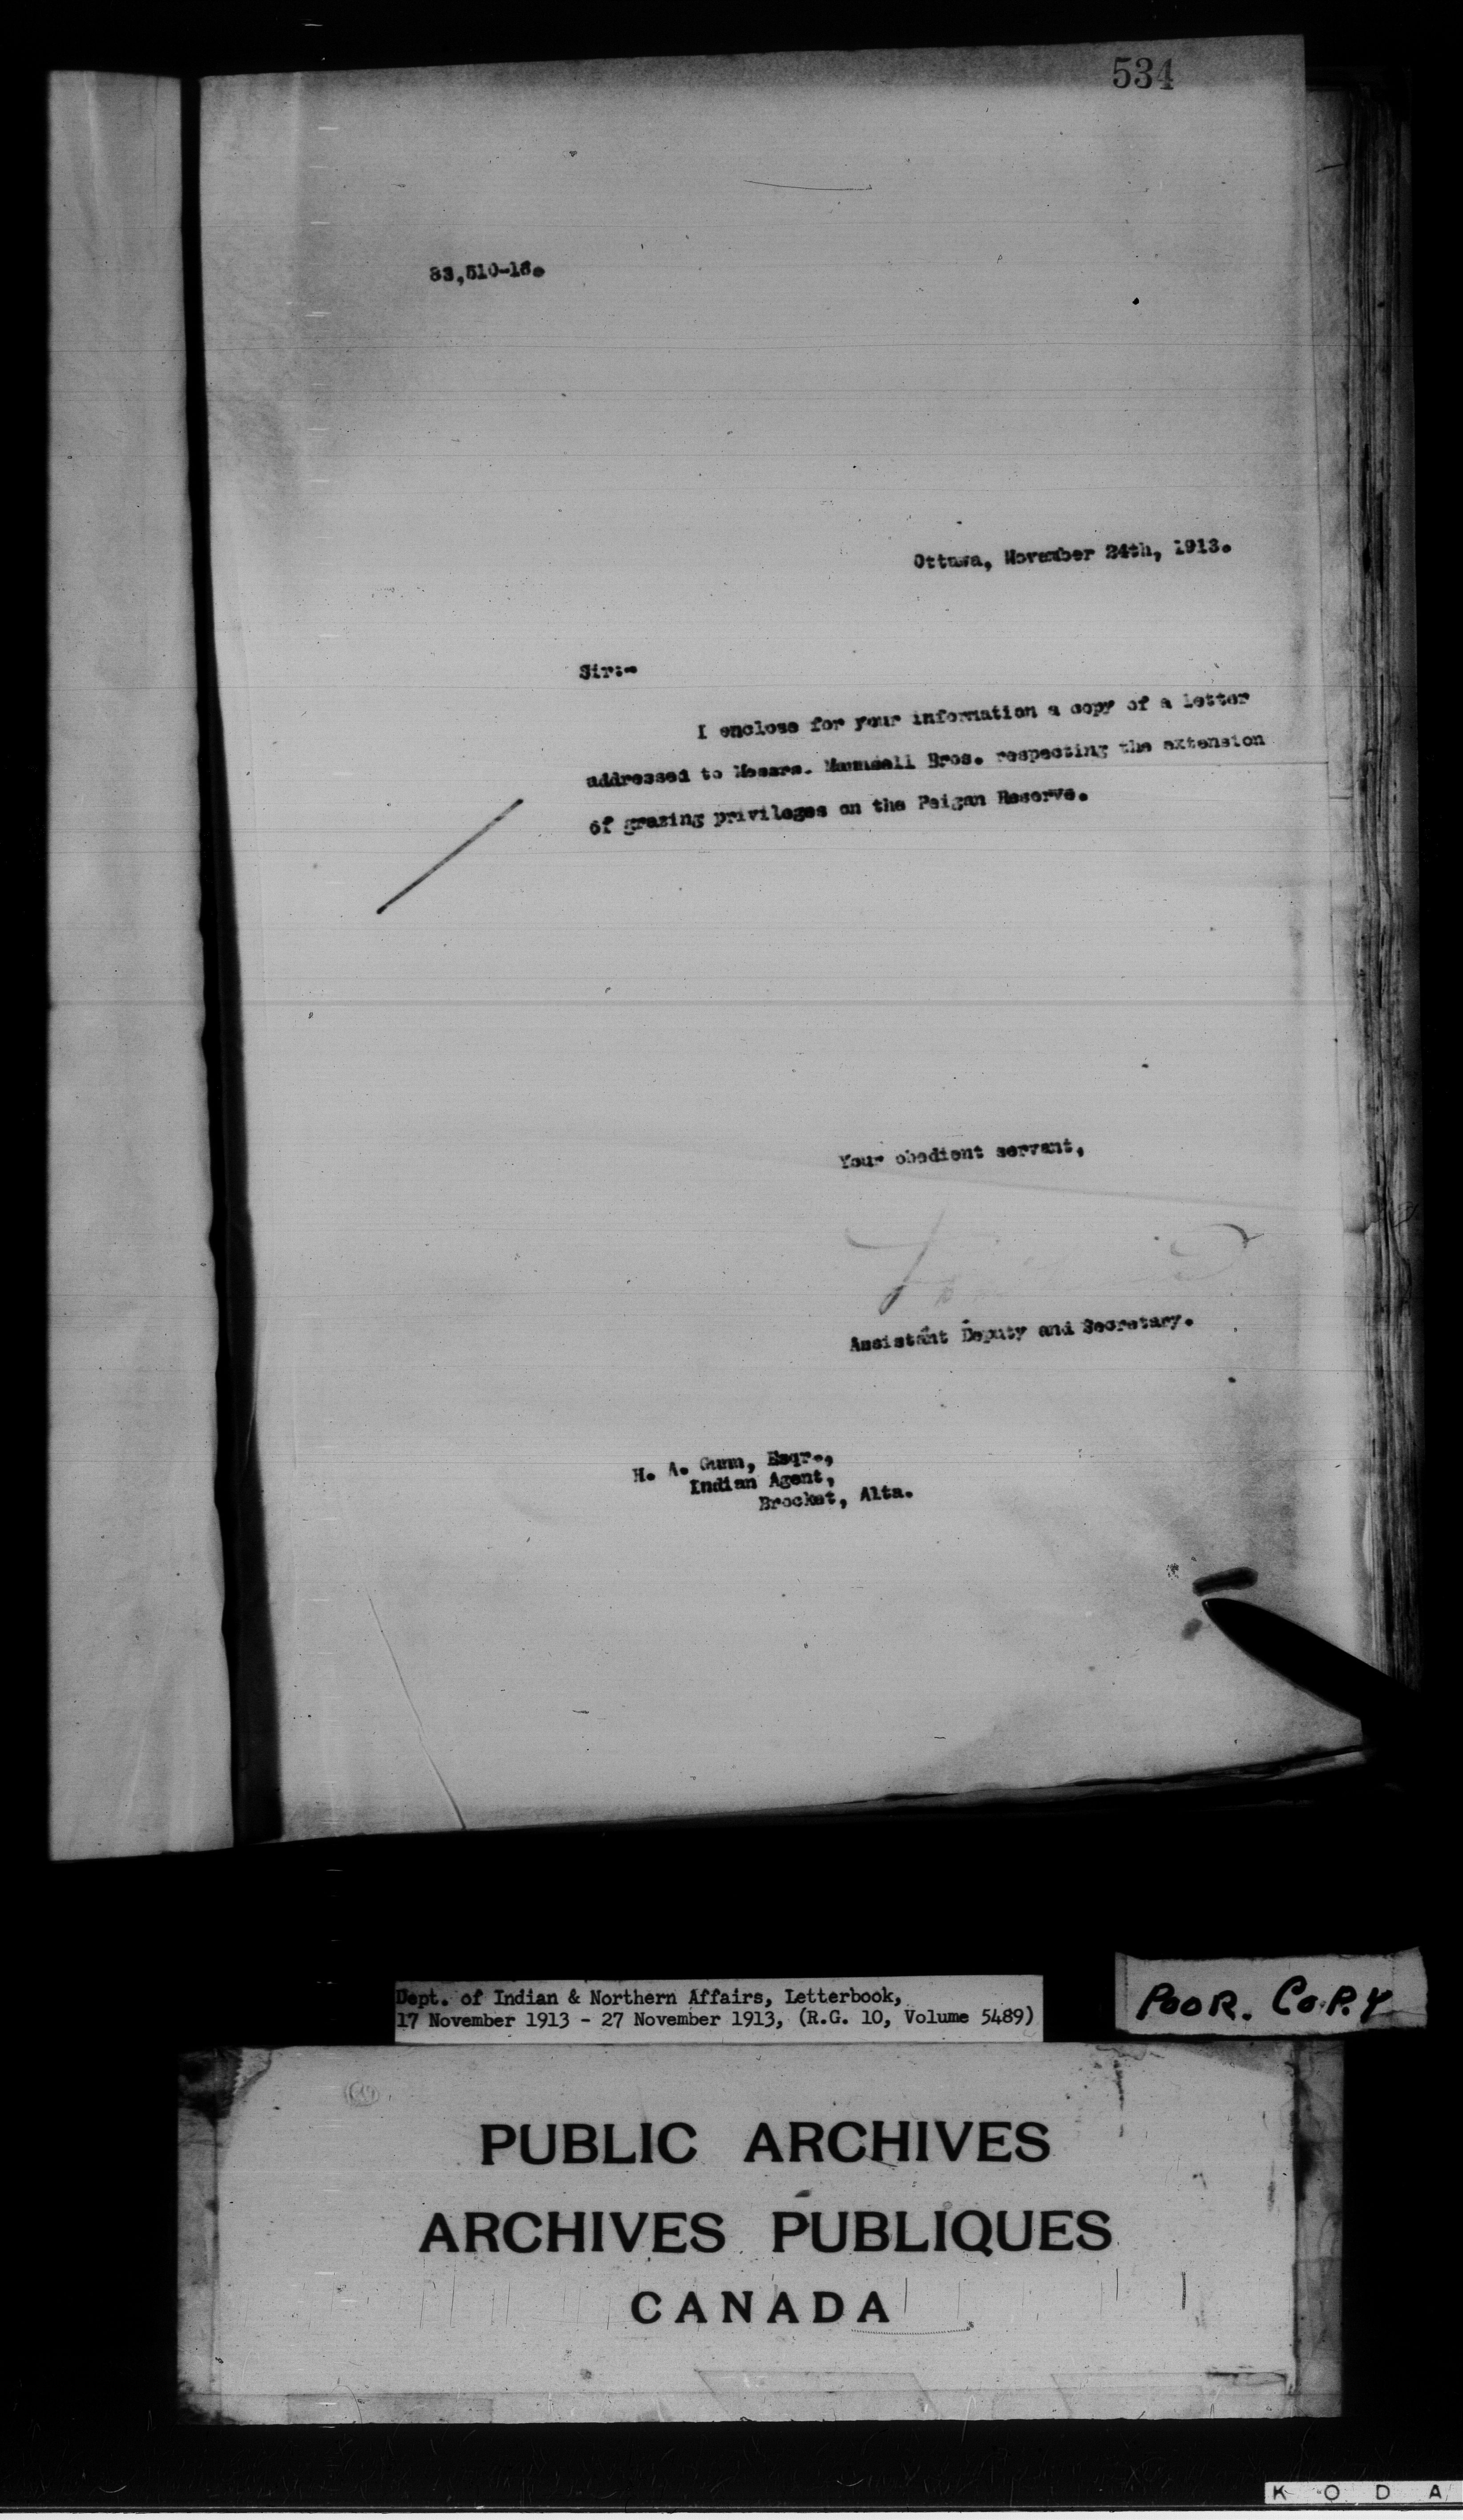 534
83,510-16.
Ottawa, November 24th, 1913.
Sir:-
I enclose for your information a copy of a letter
addressed to Messrs. Maunsell Bros. respecting the extension
of grazing privileges on the Peigan Reserve.
Your obedient servant,
Assistant Deputy and Secretary.
H. A. Gunn, Esqr.,
Indian Agent,
Brocket, Alta.
Dept. of Indian & Northern Affairs, Letterbook,
17 November 1913 - 27 November 1913, (R.G. 10, Volume 5489)
POOR. COPY
PUBLIC ARCHIVES
ARCHIVES PUBLIQUES
CANADA
K O D A